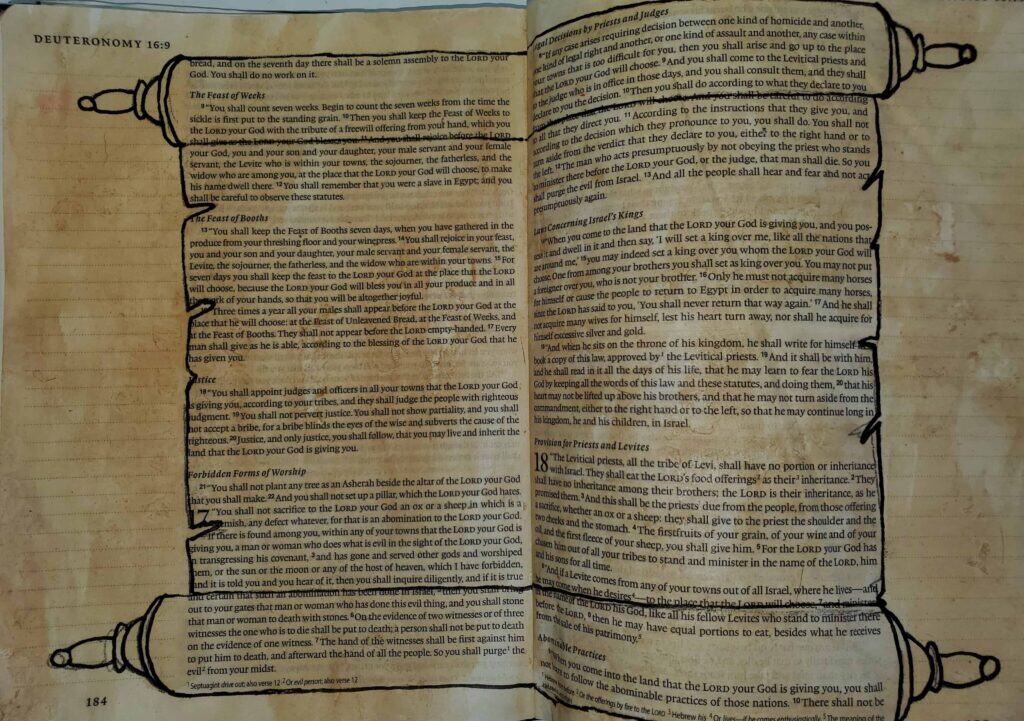 DEUTERONOMY 16:9
bread, and on the seventh day there shall be a solemn assembly to the LORD your
God. You shall do no work on it.
The Feast of Weeks
9 “You shall count seven weeks. Begin to count the seven weeks from the time the
sickle is first put to the standing grain. 10 Then you shall keep the Feast of Weeks to
the LORD your God with the tribute of a freewill offering from your hand, which you
shall give as the LORD your God blesses you. 11 And you shall rejoice before the LORD
your God, you and your son and your daughter, your male servant and your female
servant, the Levite who is within your towns, the sojourner, the fatherless, and the
widow who are among you, at the place that the LORD your God will choose, to make
his name dwell there. 12 You shall remember that you were a slave in Egypt; and you
shall be careful to observe these statutes.
The Feast of Booths
13 “You shall keep the Feast of Booths seven days, when you have gathered in the
produce from your threshing floor and your winepress. 14 You shall rejoice in your feast,
you and your son and your daughter, your male servant and your female servant, the
Levite, the sojourner, the fatherless, and the widow who are within your towns. 15 For
seven days you shall keep the feast to the LORD your God at the place that the LORD
will choose, because the LORD your God will bless you in all your produce and in all
the work of your hands, so that you will be altogether joyful.
“Three times a year all your males shall appear before the LORD your God at the
place that he will choose: at the Feast of Unleavened Bread, at the Feast of Weeks, and
at the Feast of Booths. They shall not appear before the LORD empty-handed. 17 Every
man shall give as he is able, according to the blessing of the LORD your God that he
has given you.
Justice
18 “You shall appoint judges and officers in all your towns that the LORD your God
is giving you, according to your tribes, and they shall judge the people with righteous
judgment. 19 You shall not pervert justice. You shall not show partiality, and you shall
not accept a bribe, for a bribe blinds the eyes of the wise and subverts the cause of the
righteous. 20 Justice, and only justice, you shall follow, that you may live and inherit the
land that the LORD your God is giving you.
Forbidden Forms of Worship
21 “You shall not plant any tree as an Asherah beside the altar of the LORD your God
that you shall make. 22 And you shall not set up a pillar, which the LORD your God hates.
17 “You shall not sacrifice to the LORD your God an ox or a sheep in which is a
blemish, any defect whatever, for that is an abomination to the LORD your God.
“If there is found among you, within any of your towns that the LORD your God is
giving you, a man or woman who does what is evil in the sight of the LORD your God,
in transgressing his covenant, 3 and has gone and served other gods and worshiped
them, or the sun or the moon or any of the host of heaven, which I have forbidden,
and it is told you and you hear of it, then you shall inquire diligently, and if it is true
and certain that such an abomination has been done in Israel, 5 then you shall bring
out to your gates that man or woman who has done this evil thing, and you shall stone
that man or woman to death with stones. 6 On the evidence of two witnesses or of three
witnesses the one who is to die shall be put to death; a person shall not be put to death
on the evidence of one witness. 7 The hand of the witnesses shall be first against him
to put him to death, and afterward the hand of all the people. So you shall purge 1 the
evil 2 from your midst.
1 Septuagint drive out; also verse 12 2 Or evil person; also verse 12
184
Legal Decisions by Priests and Judges
8 “If any case arises requiring decision between one kind of homicide and another,
one kind of legal right and another, or one kind of assault and another, any case within
your towns that is too difficult for you, then you shall arise and go up to the place
that the LORD your God will choose. 9 And you shall come to the Levitical priests and
to the judge who is in office in those days, and you shall consult them, and they shall
declare to you the decision. 10 Then you shall do according to what they declare to you
from that place that the LORD will choose. And you shall be careful to do according
to all that they direct you. 11 According to the instructions that they give you, and
according to the decision which they pronounce to you, you shall do. You shall not
turn aside from the verdict that they declare to you, either to the right hand or to
the left. 12 The man who acts presumptuously by not obeying the priest who stands
to minister there before the LORD your God, or the judge, that man shall die. So you
shall purge the evil from Israel. 13 And all the people shall hear and fear and not act
presumptuously again.
Laws Concerning Israel's Kings
14 “When you come to the land that the LORD your God is giving you, and you pos-
sess it and dwell in it and then say, ‘I will set a king over me, like all the nations that
are around me,’ 15 you may indeed set a king over you whom the LORD your God will
choose. One from among your brothers you shall set as king over you. You may not put
a foreigner over you, who is not your brother. 16 Only he must not acquire many horses
for himself or cause the people to return to Egypt in order to acquire many horses,
since the LORD has said to you, ‘You shall never return that way again.’ 17 And he shall
not acquire many wives for himself, lest his heart turn away, nor shall he acquire for
himself excessive silver and gold.
18 “And when he sits on the throne of his kingdom, he shall write for himself in a
book a copy of this law, approved by 1 the Levitical priests. 19 And it shall be with him,
and he shall read in it all the days of his life, that he may learn to fear the LORD his
God by keeping all the words of this law and these statutes, and doing them, 20 that his
heart may not be lifted up above his brothers, and that he may not turn aside from the
commandment, either to the right hand or to the left, so that he may continue long in
his kingdom, he and his children, in Israel.
Provision for Priests and Levites
18 “The Levitical priests, all the tribe of Levi, shall have no portion or inheritance
with Israel. They shall eat the LORD's food offerings 2 as their 3 inheritance. 2 They
shall have no inheritance among their brothers; the LORD is their inheritance, as he
promised them. 3 And this shall be the priests' due from the people, from those offering
a sacrifice, whether an ox or a sheep: they shall give to the priest the shoulder and the
two cheeks and the stomach. 4 The firstfruits of your grain, of your wine and of your
oil, and the first fleece of your sheep, you shall give him. 5 For the LORD your God has
chosen him out of all your tribes to stand and minister in the name of the LORD, him
and his sons for all time.
6 “And if a Levite comes from any of your towns out of all Israel, where he lives—and
he may come when he desires 4—to the place that the LORD will choose, 7 and ministers
in the name of the LORD his God, like all his fellow Levites who stand to minister there
before the LORD, 8 then he may have equal portions to eat, besides what he receives
from the sale of his patrimony. 5
Abominable Practices
9 “When you come into the land that the LORD your God is giving you, you shall
not learn to follow the abominable practices of those nations. 10 There shall not be
2 Or the offerings by fire to the LORD 3 Hebrew his 4 Or lives—if he comes enthusiastically 5 The meaning of the